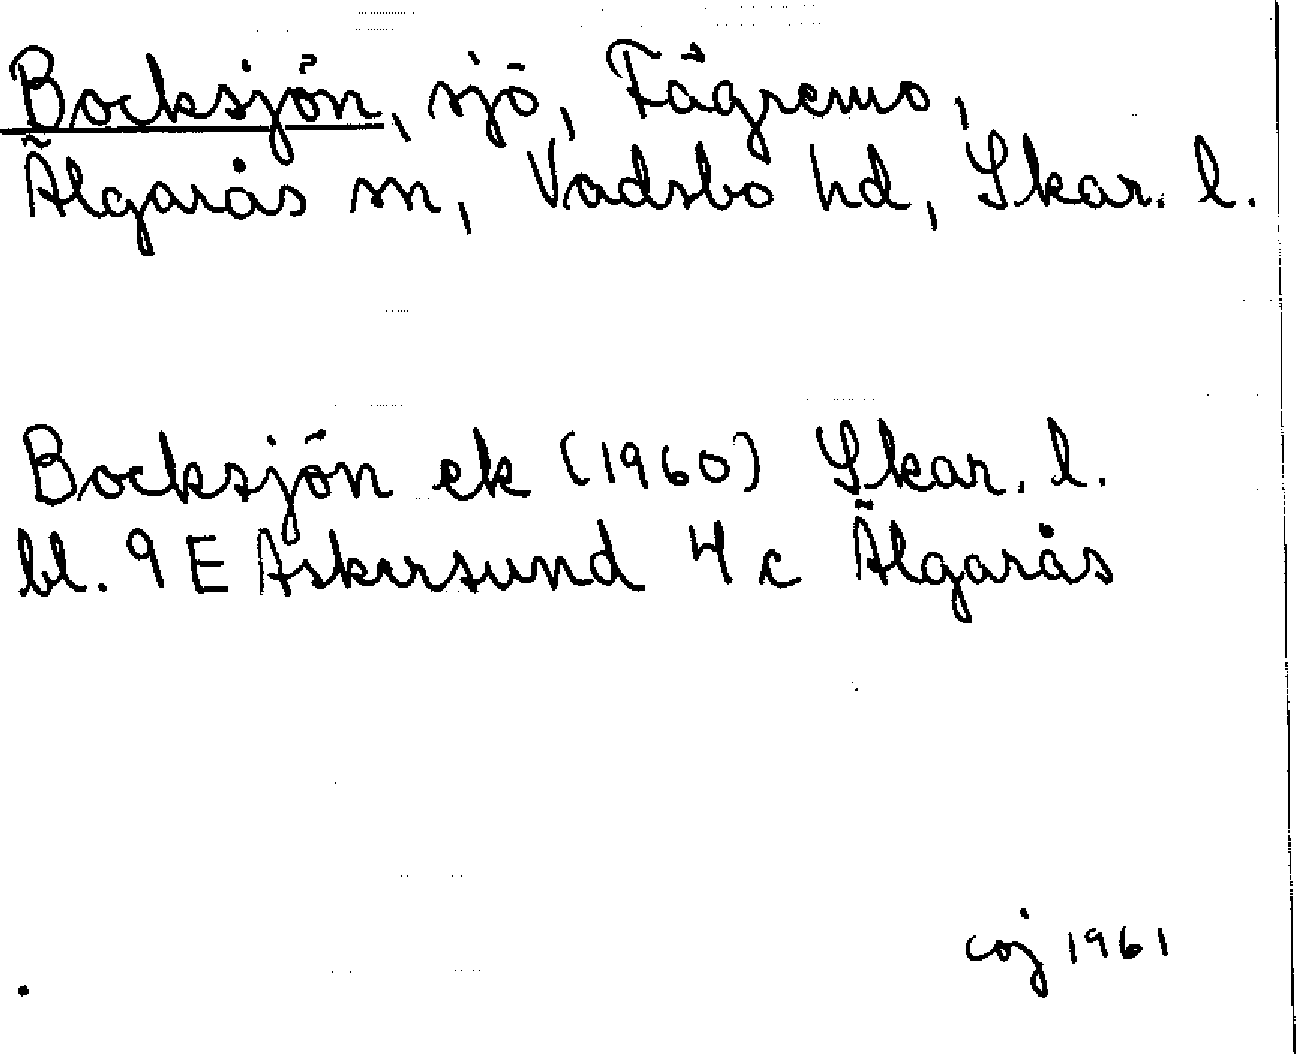 Bocksjön, sjö, Fägremo,
Älgarås sn, Vadsbo hd, Skar. l.
Bocksjön ek (1960) Skar. l.
bl. 9E Askersund 4c Älgarås
coj 1961